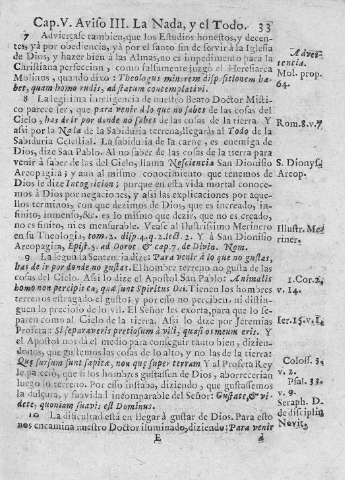 Cap. V. Aviso III. La Nada, y el Todo. 33
7 Adviertase tambien, que los Estudios honestos, y decen-
tes, yà por obediencia, yà por el santo fin de servir à la Iglesia
de Dios, y hazer bien à las Almas, no es impedimento para la
Christiana perfeccion, como falsamente juzgò el Heresiarca
Molinos, quando dixo: Theologus minorem dispositionem ha-
bet, quam homo rudis, ad statum contemplativi.
Adver-
tencia.
Mol. prop.
64.
8 La legitima inteligencia de nuestro Beato Doctor Misti-
co parece ser, que para venir à lo que no sabes de las cosas del
Cielo, has de ir por donde no sabes de las cosas de la tierra. Y
asi por la Nada de la Sabiduria terrena, llegaràs al Todo de la
Sabiduria Celestial. La sabiduria de la carne, es enemiga de
Dios, dize San Pablo. Al no saber de las cosas de la tierra para
venir à saber de las del Cielo, llama Nesciencia San Dionisio
Areopagita; y aun al mismo conocimiento que tenemos de
Dios le dize Incognicion; porque en esta vida mortal conoce-
mos à Dios por negaciones, y asi las explicaciones por aque-
llos terminos, con que dezimos de Dios, que es increado, in-
finito, inmenso, &c. es lo mismo que dezir, que no es creado,
no es finito, ni es mensurable. Vease al Ilustrissimo Merinero
en su Theologia, tom. 2. disp. 4. q. 2. sect. 2. Y à San Dionisio
Areopagita, Epist. 5. ad Dorot. & cap. 7. de Divin. Nom.
Rom. 8. v. 7.
S. Dionys.
Areop.
Illustr. Me-
riner.
9 La segunda Sentencia dize: Para venir à lo que no gustas,
has de ir por donde no gustas. El hombre terreno no gusta de las
cosas del Cielo. Asi lo dize el Apostol San Pablo: Animalis
homo non percipit ea, quæ sunt Spiritus Dei. Tienen los hombres
terrenos estragado el gusto; y por eso no perciben, ni distin-
guen lo precioso de lo vil. El Señor les exorta, para que lo se-
paren como al Cielo de la tierra. Asi lo dize por Jeremias
Profeta: Si separaveris pretiosum à vili, quasi os meum eris. Y
el Apostol nos dà el medio para conseguir tanto bien, dizien-
donos, que gustemos las cosas de lo alto, y no las de la tierra:
Quæ sursum sunt sapite, non quæ super terram. Y al Profeta Rey
le parecio, que si los hombres gustassen de Dios, aborrecerian
lo terreno de el mundo. Por eso instaba, diziendo, que gustassemos
la dulçura, y suavidad incomparable del Señor: Gustate, & vi-
dete, quoniam suavis est Dominus.
1. Cor. 2.
v. 14.
Ier. 15. v. 19.
Coloss. 3.
v. 2.
Psal. 33.
v. 9.
10 La dificultad està en llegar à gustar de Dios. Para esto
nos encamina nuestro Doctor iluminado, diziendo: Para venir
Seraph. D.
de disciplin.
Novit.
E